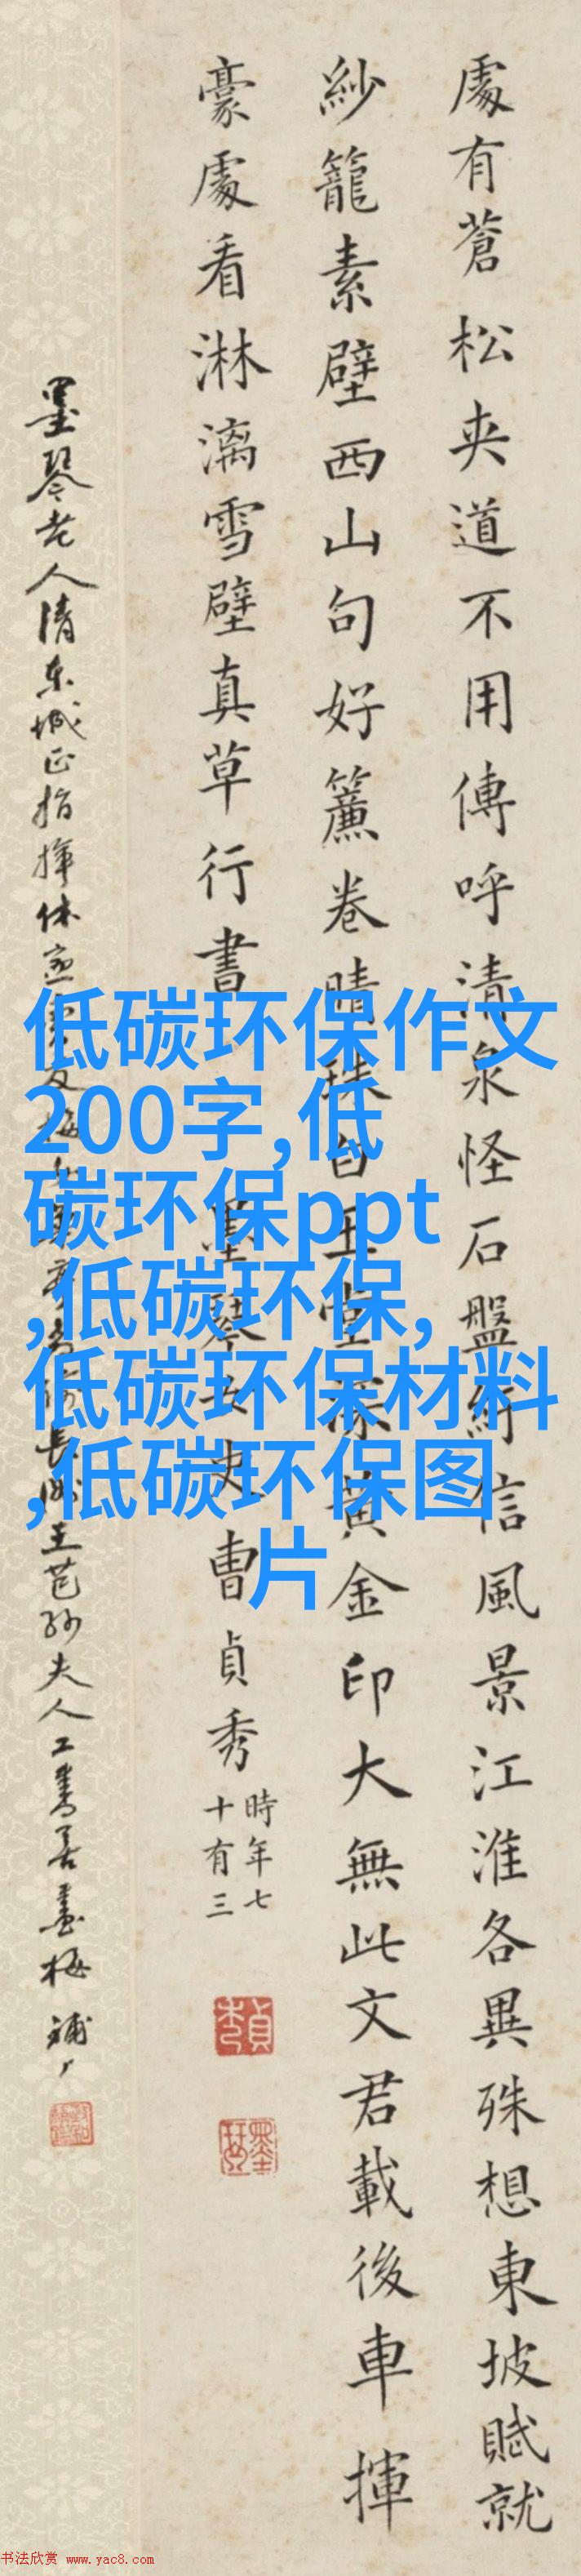 處有蒼松夾道不用傳呼清泉怪石盤紆信風景江淮各異殊想東坡賦就
紗籠素壁西山句好簾卷晴珠白玉堂深黃金印大無此文君載後車揮
豪處看淋漓雪壁真草行書
墨琴女史曹貞秀
時年七
十有三
墨琴老人清東城正指揮
長洲王芑孫夫人工書善畫梅
低碳环保作文
200字,低
碳环保ppt
,低碳环保,
低碳环保材料
,低碳环保图
片
书法欣赏 www.yac8.com